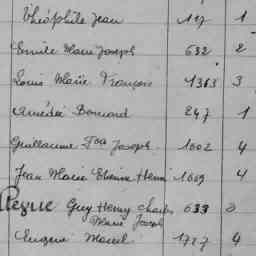 Théophile Jean 117 1
Emile Marie Joseph 632 2
Louis Marie François 1363 3
Amédée 247 1
Guillaume Fçs Joseph 1002 4
Jean Marie Etienne Henri 1069 4
Guy Henry Charles 633 2
Marie Joseph
Eugène Marcel 1727 4